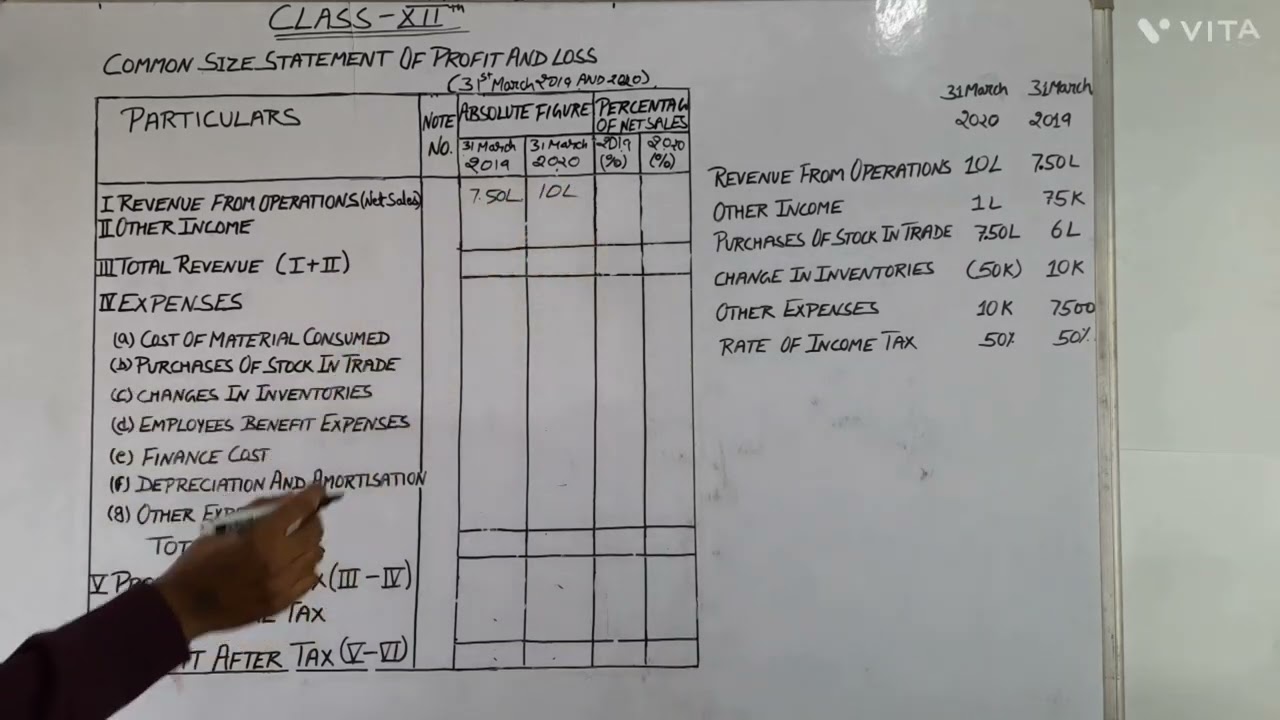 CLASS-XII th
VITA
COMMON SIZE STATEMENT OF PROFIT AND LOSS
(31st March 2019 AND 2020)
PARTICULARS
NOTE No.
ABSOLUTE FIGURE
PERCENTAG OF NET SALES
31 March 2019
31 March 2020
2019 (%)
2020 (%)
I REVENUE FROM OPERATIONS (Net Sales) 7.50L 10L
II OTHER INCOME
III TOTAL REVENUE (I+II)
IV EXPENSES
(a) COST OF MATERIAL CONSUMED
(b) PURCHASES OF STOCK IN TRADE
(c) CHANGES IN INVENTORIES
(d) EMPLOYEES BENEFIT EXPENSES
(e) FINANCE COST
(f) DEPRECIATION AND AMORTISATION
(g) OTHER
(III-IV)
TAX
AFTER TAX (V-VI)
31 March 31 March
2020 2019
REVENUE FROM OPERATIONS 10L 7.50L
OTHER INCOME 1L 75K
PURCHASES OF STOCK IN TRADE 7.50L 6L
CHANGE IN INVENTORIES (50K) 10K
OTHER EXPENSES 10K 7500
RATE OF INCOME TAX 50% 50%